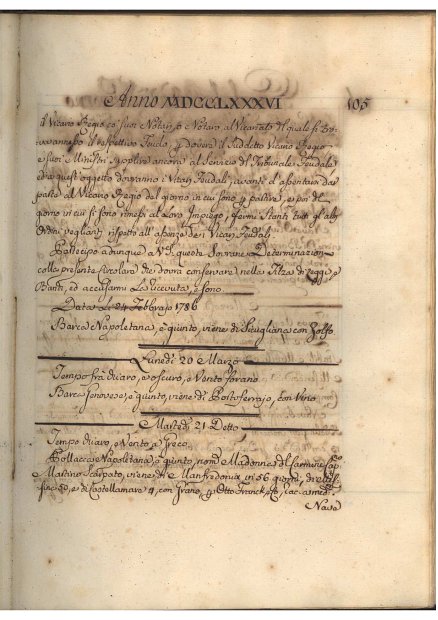 Anno MDCCLXXXVI 105
il Vicario Regio co' suoi Notari, o Notaro al Vicariato del quale si tro-
vano annesso il respettivo Feudo, e dovere il suddetto Vicario Regio
e suoi Ministri supplire ancora al Servizio del Tribunale Feudale
ed a quest'oggetto dovranno i Vicari Feudali, avanti d'assentarsi dar
parte al Vicario Regio del giorno in cui sono p partire, e poi del
giorno in cui si sono rimessi al loro Impiego, fermi stanti tutti gl'altri
Ordini veglianti rispetto all'assenze dei Vicari Feudali.
Partecipo adunque a VS. queste Sovrane Determinazioni
colla presente circolare che dovrà conservare nella Filza di Leggi, e
ed accusarmi la ricevuta, e sono
Data li 24 Febbrajo 1786
Barca Napoletana, è giunto, viene di Siculiana con Zolfo
Lunedì 20 Marzo
Tempo frà chiaro, e oscuro, e Vento forano
Barca Genovese, è giunto, viene di Portoferrajo, con Vino
Martedì 21 Detto
Tempo chiaro, e Vento a Greco
Pollacca Napoletana è giunto, nom.e Madonna del Carmine Cap.no
Martino Scarpato, viene di Manfredonia in 56 giorni, di
e di Castellamare 4, con Grano, p Otto Franck, e
Nave